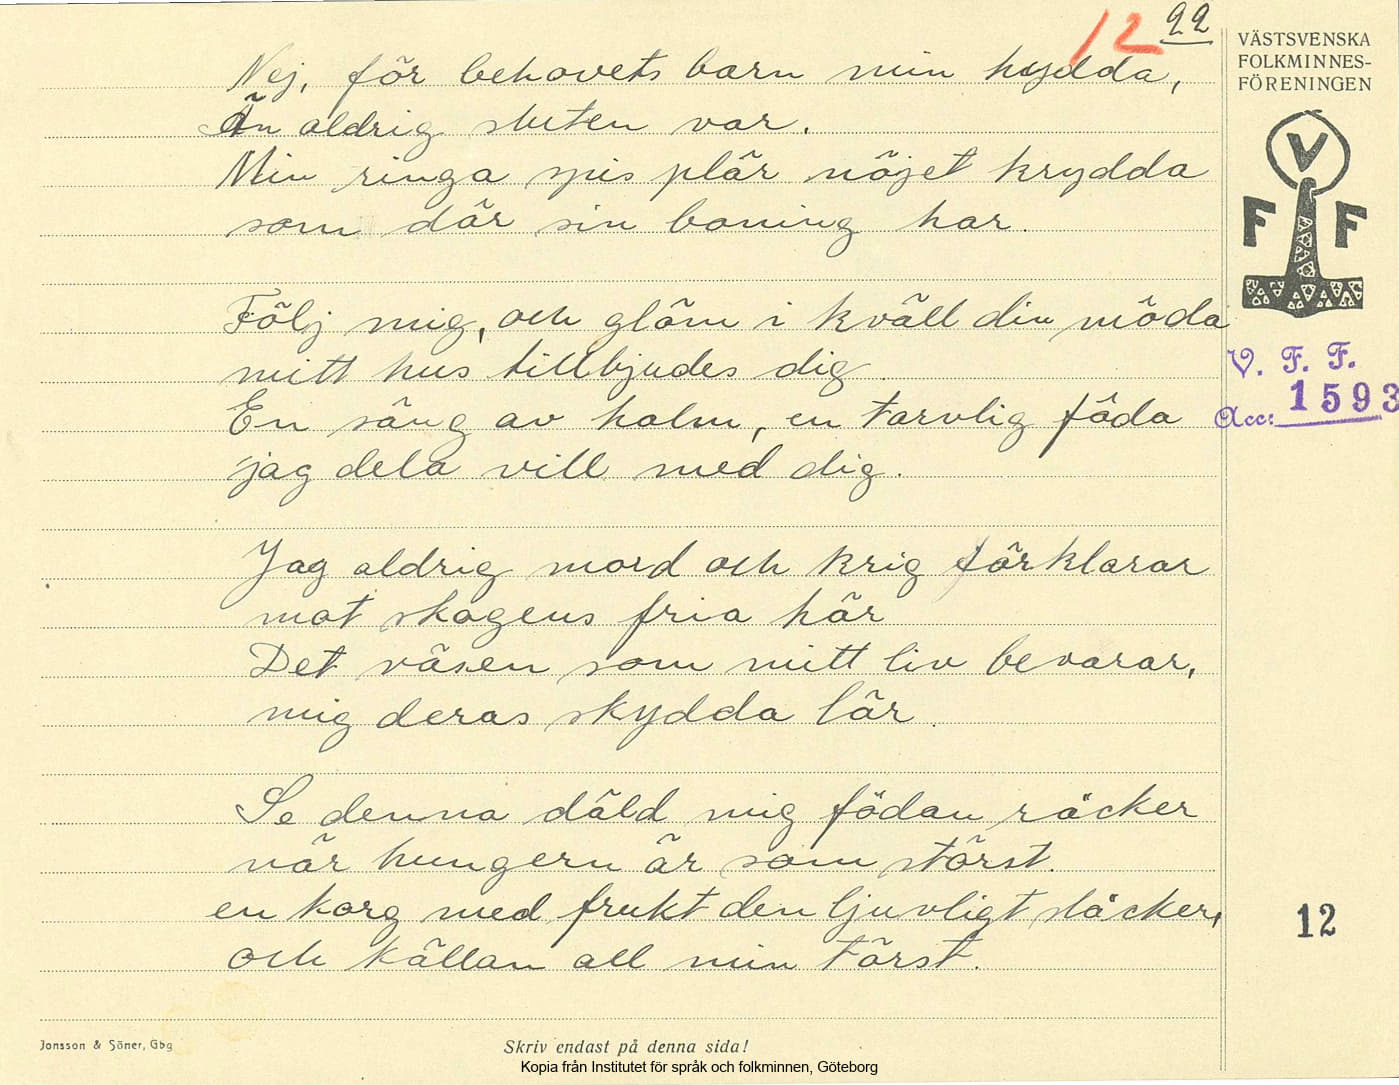 12 22
VÄSTSVENSKA
FOLKMINNES-
FÖRENINGEN
Nej, för behovets barn min hydda,
Än aldrig sluten var.
Min ringa spis plär nöjet krydda
som där sin boning har.
V
F F
Följ mig, och glöm i kväll din möda
mitt hus tillbjudes dig.
En säng av halm, en tarvlig föda
jag dela vill med dig.
V. F. F.
Acc: 1593
Jag aldrig mord och krig förklarar
mot skogens fria här
Det väsen som mitt liv bevarar,
mig deras skydda lär.
Se denna däld mig födan räcker
när hungern är som störst.
en korg med frukt den ljuvligt släcker,
och källan all min törst.
12
Jonsson & Söner, Gbg
Skriv endast på denna sida!
Kopia från Institutet för språk och folkminnen, Göteborg